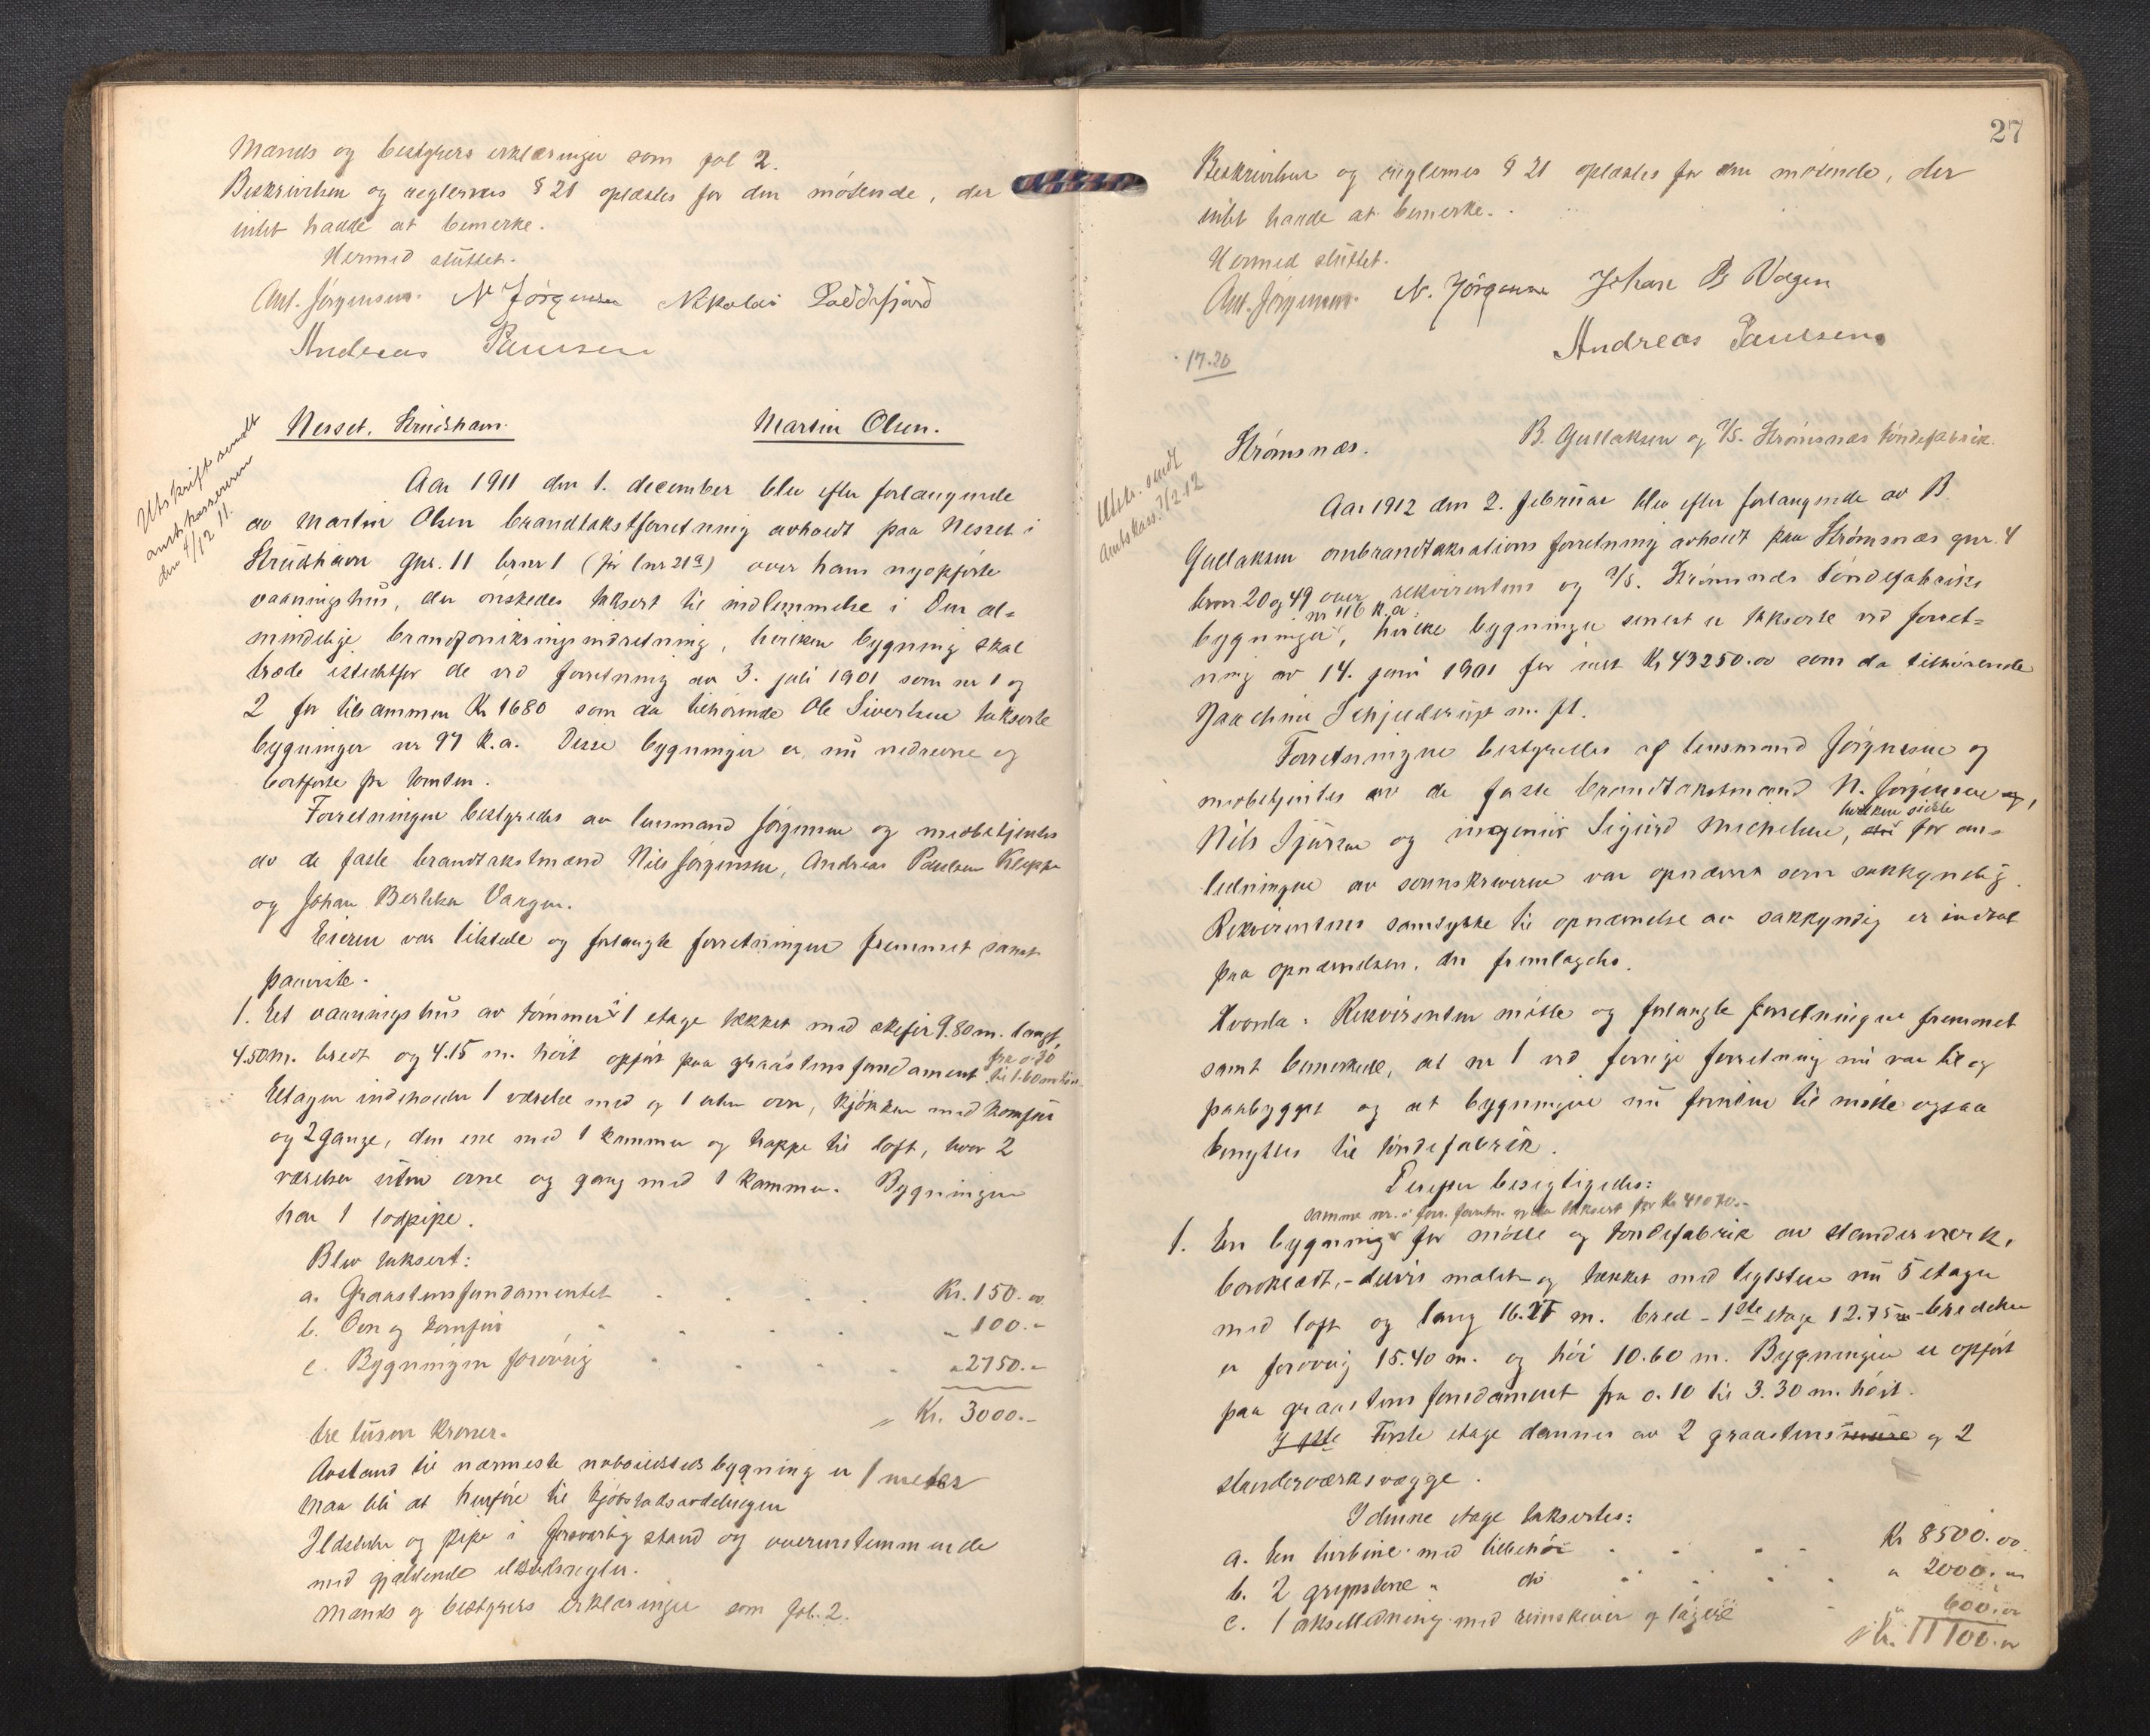 Mænds og bestyrers erklæringer som fol 2.
Beskrivelsen og reglernes § 21 oplæstes for den møtende, der
intet hadde at bemerke.
Hermed sluttet.
Ant. Jørgensen. N Jørgensen Nikolai Loddefjord
Andreas Paulsen
Utskrift sendt
amtskassereren
den 4/12 11.
Nesset, Strudshavn. Martin Olsen.
Aar 1911 den 1. december blev efter forlangende
av Martin Olsen brandtakstforretning avholdt paa Nesset i
Strudshavn gnr. 11 brnr 1 (før lnr 21a) over hans nyopførte
vaaningshus, der ønskedes taksert til indlemmelse i Den al=
mindelige brandforsikringsindretning, hvilken bygning skal
træde istedetfor de ved forretning av 3. juli 1901 som nr 1 og
2 for tilsammen Kr 1680 som da tilhørende Ole Sivertsen takserte
bygninger nr 97 k.a. Disse bygninger er nu nedrevne og
bortførte fra tomten.
Forretningen bestyredes av lensmand Jørgensen og medbetjentes
av de faste brandtakstmænd Nils Jørgensen, Andreas Paulsen Kleppe
og Johan Berthin Vaagen.
Eieren var tilstede og forlangte forretningen fremmet samt
paaviste.
1. Et vaaningshus av tømmer i 1 etage tækket med skifer 9.80 m. langt,
4.50 m. bredt og 4.15 m. høit opført paa graastensfundament fra 0.30
til 1.60 m høit.
Etagen indeholder 1 værelse med og 1 uten ovn, kjøkken med komfur
og 2 gange, den ene med 1 kammer og trappe til loft, hvor 2
værelser uten ovne og gang med 1 kammer. Bygningen
har 1 lodpipe.
Blev taksert:
a. Graastensfundamentet . . . . Kr. 150.00
b. Ovn og komfur . . . . " 100.-
c. Bygningen forøvrig . . . . " 2750.-
Kr. 3000.-
tre tusen kroner.
Avstand til nærmeste naboiersters bygning er 1 meter
Maa bli at henføre til kjøbstadsavdelingen
Ildsteder og pipe i forsvarlig stand og overensstemmende
med gjældende ildstedsregler.
Mænds og bestyrers erklæringer som fol. 2.
27
Beskrivelsen og reglernes § 21 oplæstes for den møtende, der
intet hadde at bemerke.
Hermed sluttet.
Ant. Jørgensen. N. Jørgensen Johan B Vagen
Andreas Paulsen
17.20
Utskr. sendt
Amtskass. 7/2.12
Strømsnæs. B. Gullaksen og A/S. Strømsnæs tøndefabrik.
Aar 1912 den 2. februar blev efter forlangende av B.
Gullaksen ombrandtakstations forretning avholdt paa Strømsnæs gnr. 4
brnr 20 og 49 over rekvirentens og A/S. Strømsnæs Tøndefabriks
nr 116 k.a.
bygninger, hvilke bygninger senest er takserte ved forret=
ning av 14. juni 1901 for ialt Kr 43250.00 som da tilhørende
Joachim Schjelderup m. fl.
Forretningen bestyredes af lensmand Jørgensen og
medbetjentes av de faste brandtakstmænd N. Jørgensen og,
Nils Sjursen og ingeniør Sigurd Michelsen, hvilken sidste for an=
ledningen av sorenskriveren var opnævnt som sakkyndig.
Rekvirentens samtykke til opnævnelse av sakkyndig er indtat
paa opnævnelsen, der fremlagdes.
Hvorda: Rekvirenten møtte og forlangte forretningen fremmet
samt bemerkede, at nr 1 ved forrige forretning nu var til og
paabygget og at bygningen nu foruten til mølle ogsaa
benyttes til tøndefabrik.
Derefter besigtigedes:
samme nr. i forr. forretn. da taksert for Kr 41070.-
1. En bygning for mølle og tøndefabrik av standerværk,
bordklædt, - delvis malet - og tækket med taglsten nu 5 etager
med loft og lang 16.27 m. bred - 1ste etage 12.75 m - bredden
er forøvrig 15.40 m. og høi 10.60 m. Bygningen er opført
paa graastens fundament fra 0.10 til 3.30 m. høit.
I 1ste Første etage dannes av 2 graastensmure og 2
standerværksvægge.
I denne etage taksertes:
a. En turbine med tilbehør . . . . Kr 8500.00
b. 2 grepstene " do . . . . " 2000.00
c. 1 akselledning med remskiver og lagere . " 600.00
Kr. 11100.00